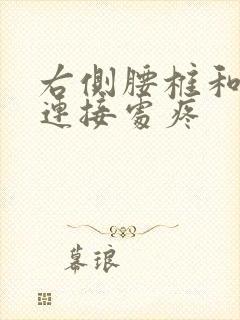 右側腰柱和
連接處疼
幕琅